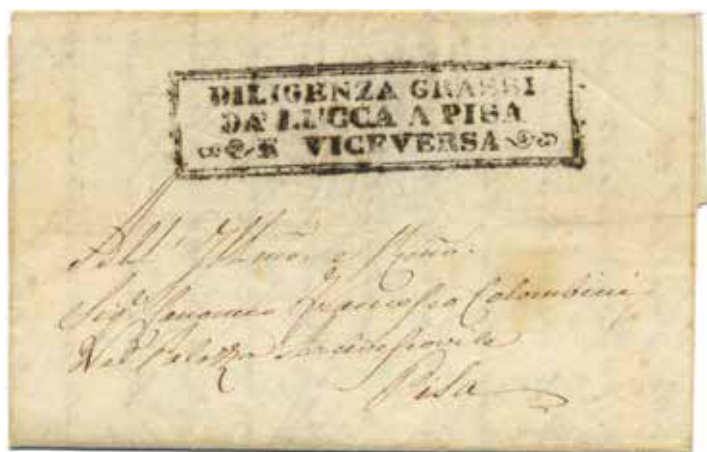 DILIGENZA GRASSI
DA LUCCA A PISA
E VICEVERSA
All' Illmo e Rmo
Sigr Canonico Francesco Colombini
Nel Palazzo Arcivescovile
Pisa